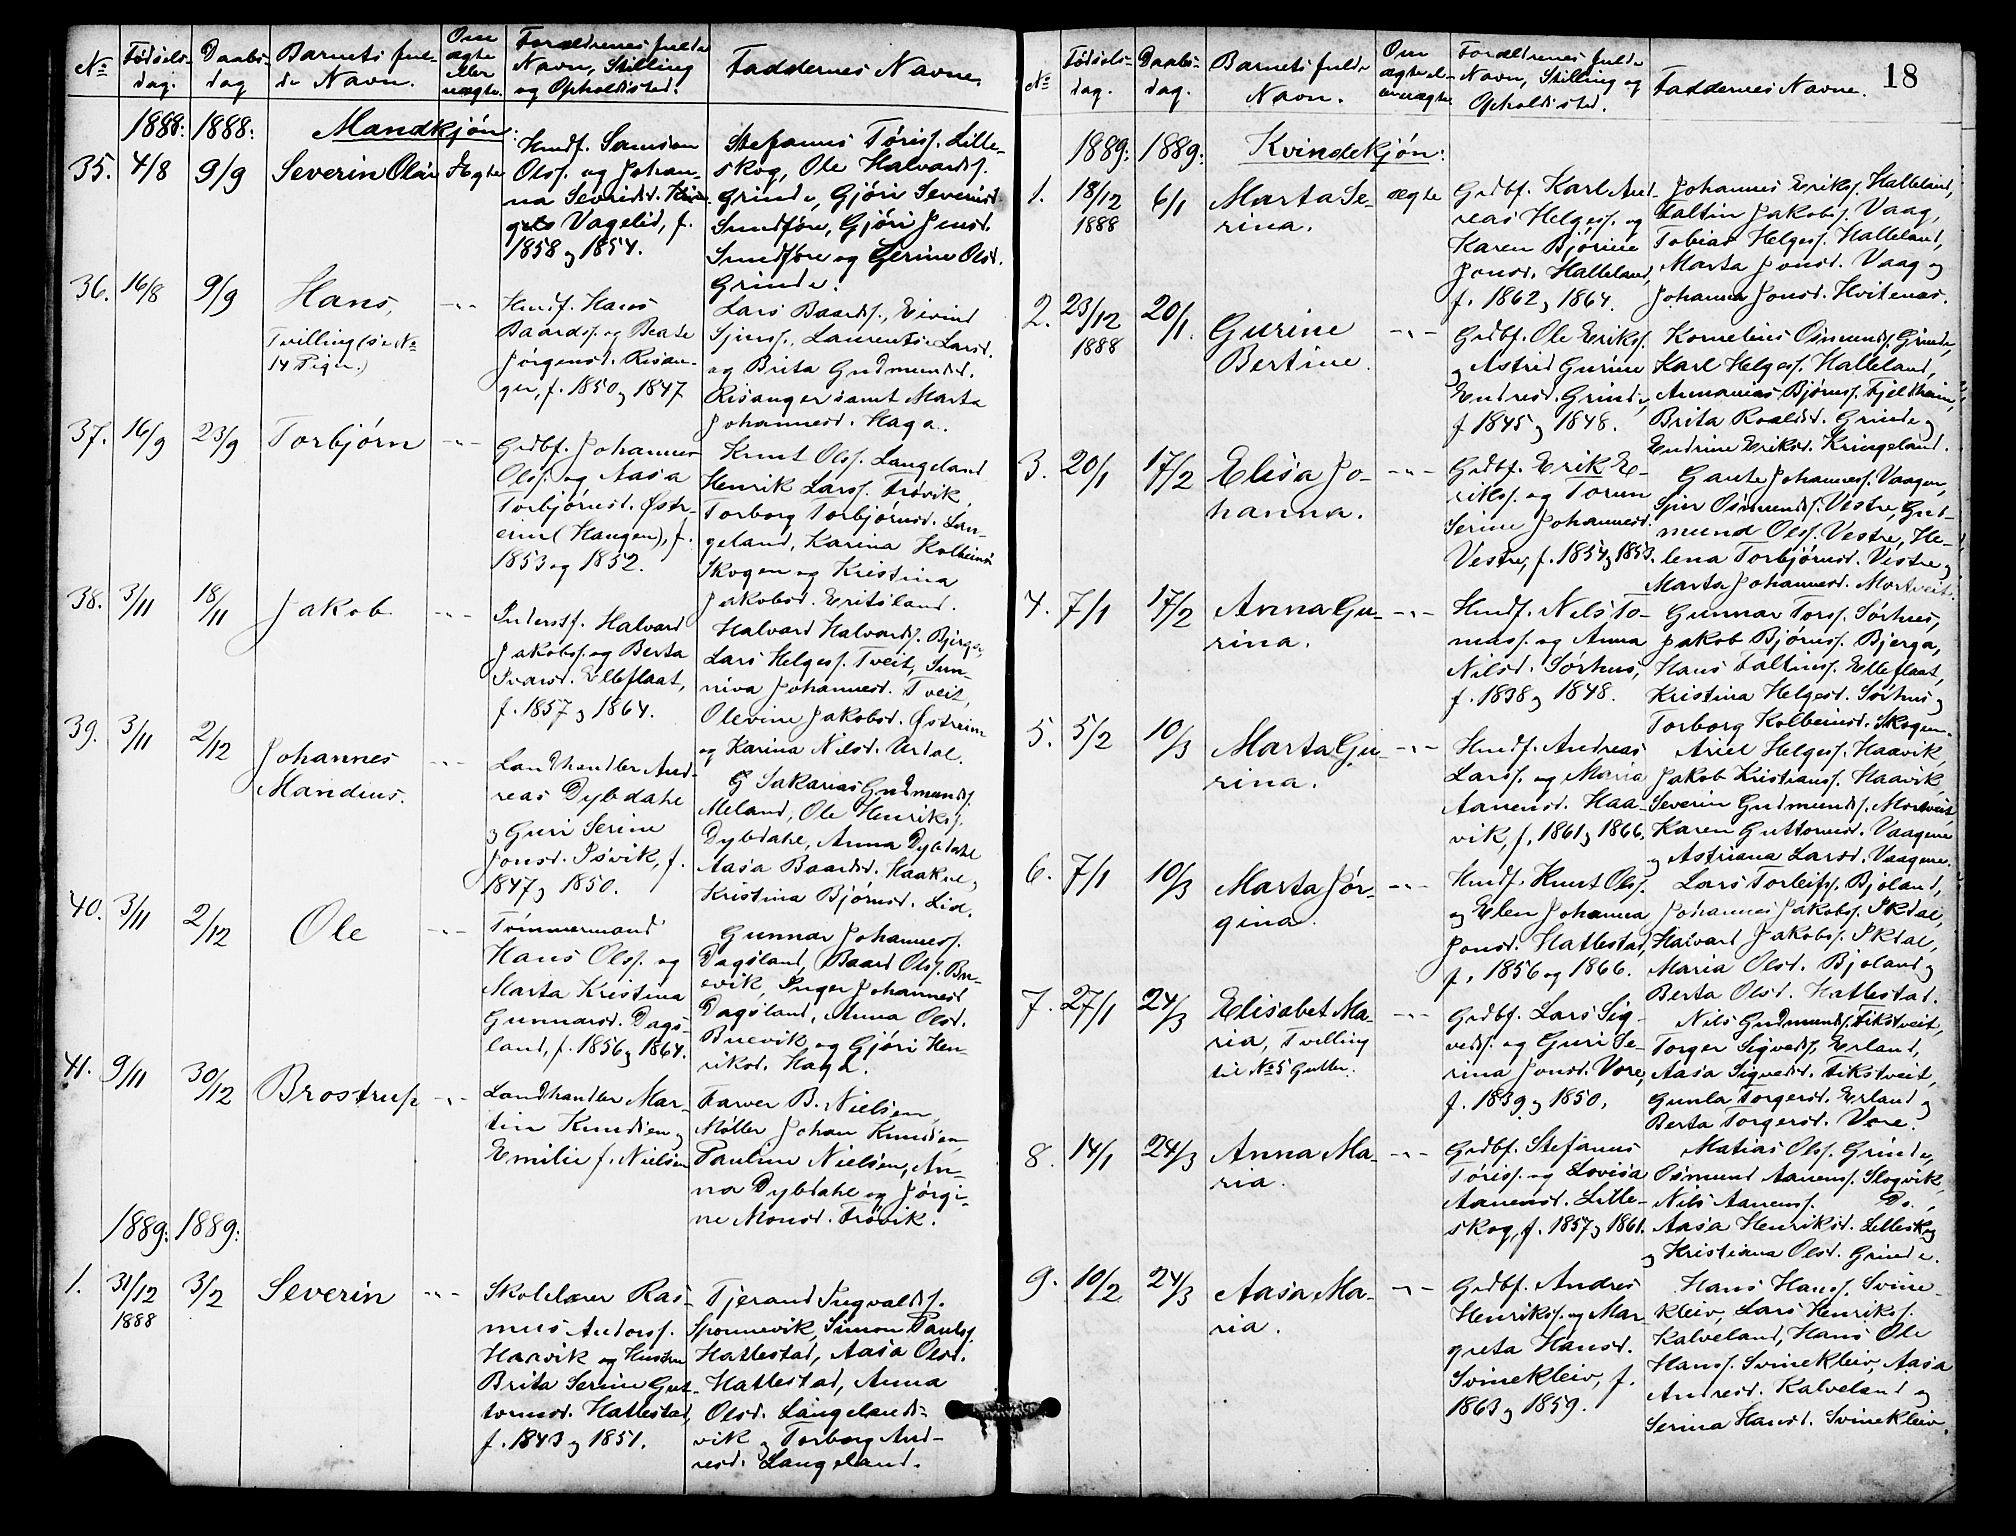 No
Fødsels-
dag.
Daabs-
dag
Barnets ful-
de Navn.
Om
ægte
eller
uægte.
Forældrenes fulde
Navn, Stilling
og Opholdssted.
Faddernes Navne.
1888: 1888: Mandkjøn:
35. 4/8 9/9 Severin Olai Ægte
Husmf. Samson
Ols. og Johan-
na Sevrinsd.
Vagelid, f.
1858 og 1854.
Stefanus Tøriss. Lille-
skog, Ole Halvards.
Grinde, Gjøri Severinsd.
Sundføre, Gjøri Jensd.
Sundføre og Gerine Olsd.
Grinde.
36. 16/8 9/9 Hans, -"-
Tvilling (se No
14 Piger.)
Husmf. Hans
Baards. og Beate
Jørgensd. Risan-
ger, f. 1850 og 1847
Lars Baards., Eivind
Laurentse Larsd.
og Brita Gudmundsd.
Risanger samt Marta
Johannesd. Haga.
37. 16/9 23/9 Torbjørn -"-
Grdbf. Johannes
Ols. og Aasa
Torbjørnsd. Østr-
eim (Haugen), f.
1853 og 1852.
Knut Ols. Langeland
Henrik Larss. Frøvik,
Torborg Torbjørnsd. Lan-
geland, Karina Kolbeinsd.
Skogen og Kristina
Jakobsd. Eritsland.
38. 3/11 18/11 Jakob -"-
Inderstf. Halvard
Jakobs. og Berta
Ivarsd. Elleflaat,
f. 1857 og 1864.
Halvard Halvards. Bjerga,
Lars Helges. Tveit, Sun-
niva Johannesd. Tveit,
Olevine Jakobsd. Østreim
og Karina Nilsd. Urdal.
39. 3/11 2/12 Johannes
Mandius. -"-
Landhandler And-
reas Dybdahl
og Guri Serine
Jonsd. Isvik, f.
1847 og 1850.
G Sakarias Gudmunds.
Meland, Ole Henriks.
Dybdahl, Anna Dybdahl
Aasa Baardsd. Haakne,
Kristina Bjørnsd. Lid.
40. 3/11 2/12 Ole -"-
Tømmermand
Hans Ols. og
Marta Kristina
Gunnarsd. Dags-
land, f. 1856 og 1864.
Gunnar Johanness.
Dagsland, Baard Ols. Bu-
evik, Inger Johannesd.
Dagsland, Anna Olsd.
Buevik og Gjøri Hen-
riksd. Haga.
41. 9/11 30/12 Brostrup -"-
Landhandler Mar-
tin Knudsen og
Emilie f. Nielsen
Farver B. Nielsen,
Møller Johan Knudsen
Pauline Nielsen, An-
na Dybdahl og Jørgi-
ne Monsd. Frøvik.
1889: 1889:
1. 31/12
1888 3/2 Severin -"-
Skolelærer Ras-
mus Anders.
Haavik og Hustru
Brita Serine Gut-
tormsd. Hattestad,
f. 1843 og 1851.
Tjerand Ingvalds.
Sponnevik, Simon Pauls.
Hattestad, Aasa Olsd.
Hattestad, Anna
Olsd. Langelands-
vik og Torborg And-
resd. Langeland.
18
No
Fødsels-
dag.
Daabs-
dag.
Barnets fulde
Navn.
Om
ægte el-
er uægte
Forældrenes fulde
Navn, Stilling og
Opholdssted.
Faddernes Navne.
1889: 1889: Kvindekjøn:
1. 18/12
1888 6/1 Marta Se-
rina. ægte
Grdbf. Karl And-
reas Helges. og
Karen Bjørine
Jonsd. Halleland,
f. 1862 og 1864.
Johannes Eriks. Halleland,
Faltin Jakobs. Vaag,
Tobias Helges. Halleland,
Marta Jonsd. Vaag og
Johanna Jonsd. Hvitenæs.
2. 23/12
1888 20/1. Gurine
Bertine. -"-
Grdbf. Ole Eriks.
og Astrid Gurine
Endresd. Grinde,
f. 1845 og 1848.
Kornelius Osmunds. Grinde,
Karl Helges. Halleland,
Annanias Bjørns. Fjeldheim,
Brita Roaldsd. Grinde og
Endrine Eriksd. Kringeland.
3. 20/1 17/2 Elisa Jo-
hanna. -"-
Grdbf. Erik E-
riks. og Torun
Serine Johannesd.
Vestre, f. 1854 og 1853.
Gaute Johanness. Vaagen,
Sjur Osmunds. Vestre, Gud-
mund Ols. Vestre, He-
lena Torbjørnsd. Vestre og
Marta Johannesd. Mortveit.
4. 7/1 17/2 Anna Gu-
rina. -"-
Husmf. Nils To-
mass. og Anna
Nilsd. Sørhus,
f. 1838 og 1848.
Gunnar Torss. Sørhus,
Jakob Bjørns. Bjerga,
Hans Faltins. Elleflaat,
Kristina Helgesd. Sørhus og
Torborg Kolbeinsd. Skogen.
5. 5/2 10/3 Marta Gu-
rina. -"-
Husmf. Andreas
Larss. og Maria
Aanensd. Haa-
vik, f. 1861 og 1866.
Ariel Helges. Haavik,
Jakob Kristians. Haavik,
Severin Gudmunds. Mortveit,
Karen Guttormsd. Vaagene
og Astriana Larsd. Vaagene.
6. 7/1 10/3 Marta Jør-
gina. -"-
Husmf. Knut Ols.
og Elen Johanna
Jonsd. Hattestad,
f. 1856 og 1866.
Lars Torleifs. Bjoland,
Johannes Jakobs. Økdal,
Halvard Jakobs. Økdal,
Maria Olsd. Bjoland og
Berta Olsd. Hattestad.
7. 27/1 24/3 Elisabet Ma-
ria, Tvilling
til No 5 Gutter. -"-
Grdbf. Lars Sig-
veds. og Guri Se-
rina Jonsd. Vore,
f. 1839 og 1850.
Nils Gudmunds. Fikstveit,
Torger Sigveds. Erland,
Aasa Sigvedsd. Fikstveit,
Gunla Torgersd. Erland og
Berta Torgersd. Vore.
8. 14/1 24/3 Anna Ma-
ria. -"-
Grdbf. Stefanus
Tøriss. og Lovisa
Aanensd. Lille-
skog, f. 1857 og 1861.
Matias Ols. Grinde,
Osmund Aanens. Slogvik,
Nils Aanens. Do.,
Aasa Henriksd. Lilleskog
og Kristiana Olsd. Grinde.
9. 10/2 24/3 Aasa Ma-
ria. -"-
Grdbf. Andres
Henriks. og Mar-
greta Hansd.
Svinekleiv, f.
1863 og 1859.
Hans Hans. Svine-
kleiv, Lars Henriks.
Kalveland, Hans Ole
Hans. Svinekleiv, Aasa
Andresd. Kalveland og
Serina Hansd. Svinekleiv.